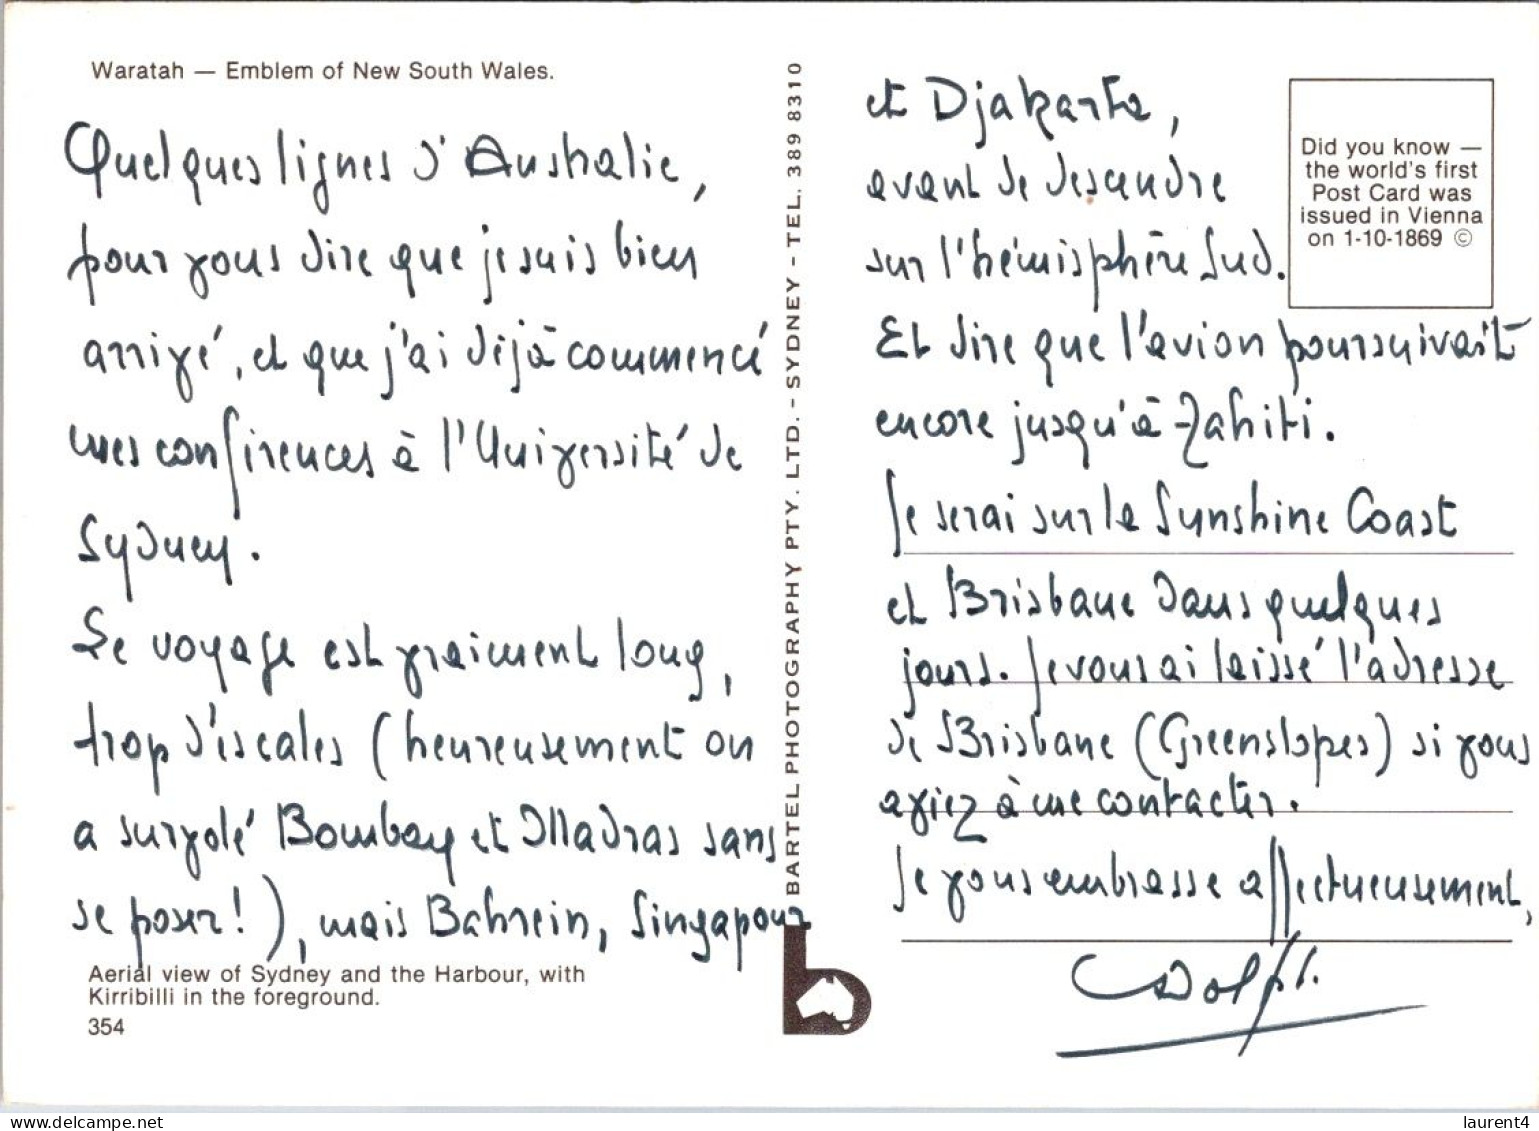 Waratah — Emblem of New South Wales.
Quelques lignes d'Australie,
pour vous dire que je suis bien
arrivé, et que j'ai déjà commencé
mes conférences à l'Université de
Sydney.
Le voyage est vraiment long,
trop d'escales (heureusement on
a survolé Bombay et Madras sans
se poser!), mais Bahrein, Singapour
Aerial view of Sydney and the Harbour, with
Kirribilli in the foreground.
354
BARTEL PHOTOGRAPHY PTY. LTD. - SYDNEY - TEL. 389 8310
b
et Djakarta,
avant de descendre
sur l'hémisphère Sud.
Et dire que l'avion poursuivait
encore jusqu'à Tahiti.
Je serai sur la Sunshine Coast
et Brisbane dans quelques
jours. Je vous ai laissé l'adresse
de Brisbane (Greenslopes) si vous
aviez à me contacter.
Je vous embrasse affectueusement,
Did you know —
the world's first
Post Card was
issued in Vienna
on 1-10-1869 ©
delcampe.net
laurent4